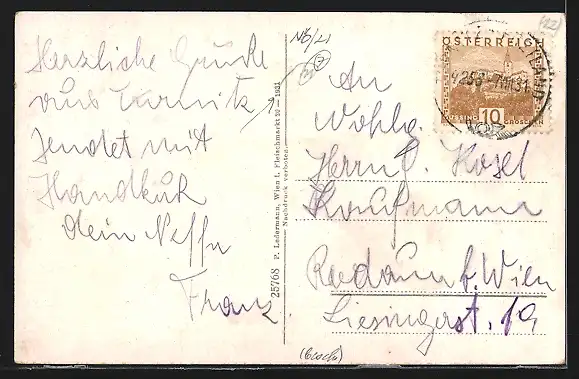 Herzliche Grüße
aus
sendet mit
Handkuß
dein Neffe
Franz
25768 P. Ledermann, Wien I., Fleischmarkt 20 – 1931
Nachdruck verboten.
ÖSTERREICH
GÜSSING 10 GROSCHEN
An
Wohlg.
Herrn J. Kosel
Kaufmann
Rodaun b. Wien
Liesingerst. 19